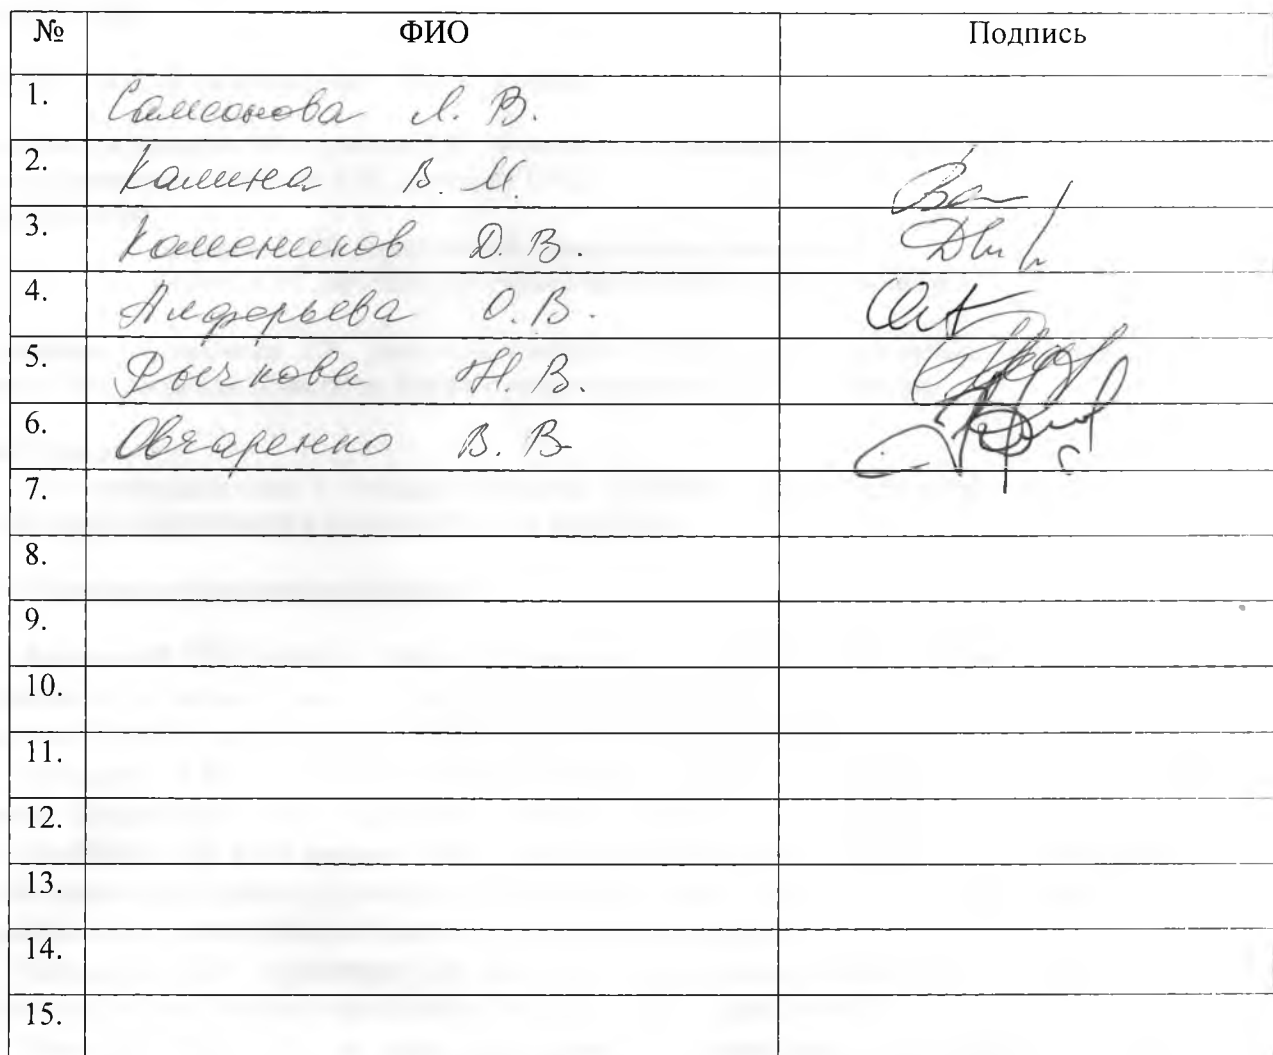 № ФИО Подпись
1. Самсонова Л. В.
2. Калина В. М.
3. Каменчиков Д. В.
4. Алферьева О. В.
5. Рычкова Н. В.
6. Овчаренко В. В.
7.
8.
9.
10.
11.
12.
13.
14.
15.